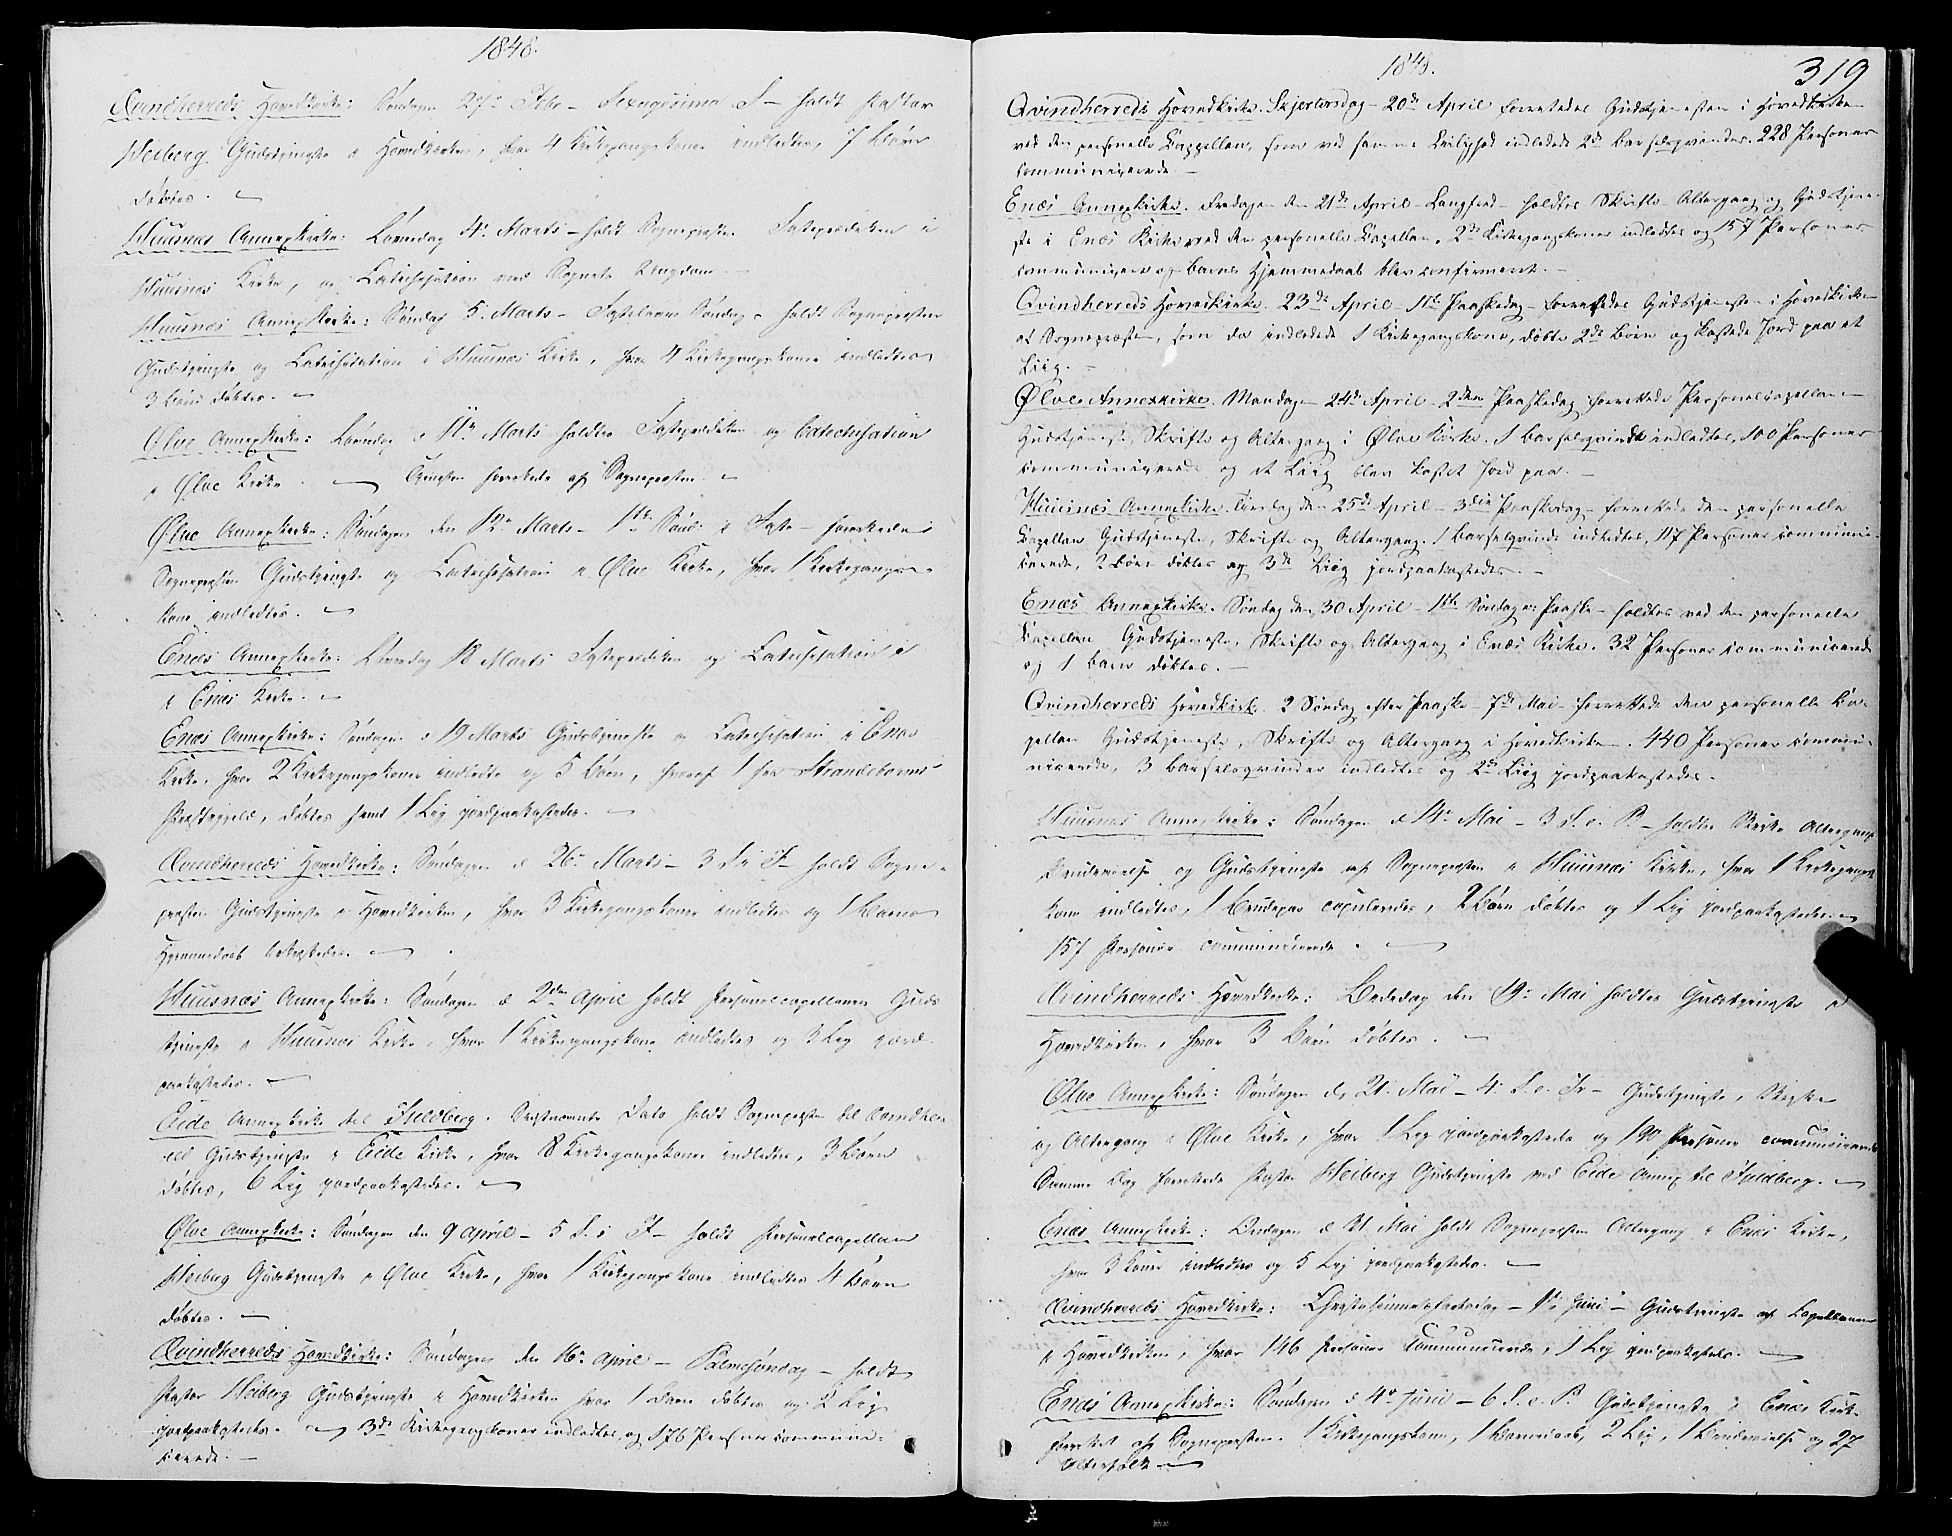 1848.
Qvindherreds Hovedkirke: Søndagen 27de Febr – Sexagesima S – holdt Pastor
Heiberg Gudstjeneste i Hovedkirken, hvor 4 Kirkegangskoner indledtes, 7 Børn
døbtes. –
Huusnæs Annexkirke: Løverdag 4de Marts – holdt Sognepresten Fasteprædiken i
Huusnæs Kirke, og Catechisation med Sognets Ungdom. –
Huusnæs Annexkirke: Søndag 5. Marts – Fastelavns Søndag – holdt Sognepresten
Gudstjeneste og Catechisation i Huusnæs Kirke, hvor 4 Kirkegangskoner indledtes
3 Børn døbtes. –
Ølve Annexkirke: Løverdag d 11te Marts holdtes Fasteprædiken og Catechisation
i Ølve Kirke. – Tjenesten forrettedes af Sognepresten. –
Ølve Annexkirke: Søndagen den 12te Marts – 1ste Sønd. i Faste – forrettede
Sognepresten Gudstjeneste og Catechisation i Ølve Kirke, hvor 1 Kirkegangs-
kone indledtes. –
Enæs Annexkirke: Løverdag 18 Marts Fasteprædiken og Catechisation i
i Enæs Kirke. –
Enæs Annexkirke: Søndagen d 19 Marts Gudstjeneste og Catechisation i Enæs
Kirke, hvor 2 Kirkegangskoner indledtes og 5 Børn, hvoraf 1 fra Strandebarms
Præstegjeld, døbtes samt 1 Lig jordpaakastedes. –
Qvindherreds Hovedkirke: Søndagen d 26de Marts – 3 S i F – holdt Sogne-
presten Gudstjeneste i Hovedkirken, hvor 3 Kirkegangskoner indledtes og 1 Barns
Hjemmedaab bekræftedes. –
Huusnæs Annexkirke: Søndagen d 2den April holdt Personelcapellanen Guds
tjeneste i Huusnæs Kirke, hvor 1 Kirkegangskone indledtes og 3 Lig jord-
paakastedes. –
Eide Annexkirke til Fieldberg. Sidstnævnte Dato holdt Sognepresten til Qvindher
red Gudstjeneste i Eide Kirke, hvor 8 Kirkegangskoner indledtes, 3 Børn
døbtes, 6 Lig jordpaakastedes. –
Ølve Annexkirke: Søndagen den 9 April – 5 S. i F – holdt Personelcapellan
Heiberg Gudstjeneste i Ølve Kirke, hvor 1 Kirkegangskone indledtes 4 Børn
døbtes. –
Qvindherreds Hovedkirke: Søndagen den 16de April – Palmesøndag – holdt
Pastor Heiberg Gudstjeneste i Hovedkirken hvor 1 Barn døbtes og 2 Lig
jordpaakastedes. – 3de Kirkegangskoner indledtes, og 176 Personer communi-
cerede. –
1848.
319
Qvindherreds Hovedkirke. Skjertorsdag – 20de April forrettedes Gudstjenesten i Hovedkirken
ved den personelle Cappellan, som ved samme Leilighed indledede 2de Barselqvinder. 228 Personer
communicerede. –
Enæs Annexkirke. Fredagen den 21de April – Langfred – holdtes Skrifte, Altergang og Gudstjene-
ste i Enæs Kirke ved den personelle Capellan, 2de Kirkegangskoner indledtes og 157 Personer
communicere og Barns Hjemmedaab blev confirmeret. –
Qvindherreds Hovedkirke. 23de April – 1ste Paaskedag – forrettedes Gudstjenesten i Hovedkirken
af Sognepræsten, som da indledede 1 Kirkegangskone, døbte 2de Børn og kastede Jord paa et
Liig. –
Ølve Annexkirke. Mandagen 24de April – 2den Paaskedag forrettede Personelcapellanen
Gudstjeneste, Skrifte og Altergang i Ølve Kirke. 1 Barselqvinde indledtes, 100 Personer
communicerede og et Liig blev kastet Jord paa. –
Huusnæs Annexkirke. Tirsdag den 25de April – 3die Paaskedag – forrettede den personelle
Capellan Gudstjeneste, Skrifte og Altergang. 1 Barselqvinde indledtes, 117 Personer communi-
cerede, 2 Børn døbtes og 3de Liig jordpaakastedes. –
Enæs Annexkirke. Søndag den 30 April – 1ste Søndag e: Paaske – holdtes ved den personelle
Capellan Gudstjeneste, Skrifte og Altergang i Enæs Kirke. 32 Personer communicerede
og 1 Barn døbtes. –
Qvindherreds Hovedkirk. 2 Søndag efter Paaske – 7de Mai – forrettede den personelle Ca-
pellan Gudstjeneste, Skrifte og Altergang i Hovedkirken. 440 Personer commu-
nicerede, 3 Barselqvinder indledtes og 2de Liig jordpaakastedes.
Huusnæs Annexkirke: Søndagen d 14de Mai – 3 S. e. P – holdtes Skrifte Altergang
Brudevielse og Gudstjeneste af Sognepresten i Huusnæs Kirke, hvor 1 Kirkegangs
kone indledtes, 1 Brudepar copuleredes, 2 Børn døbtes og 1 Lig jordpaakastedes. –
157 Personer communicerede. –
Qvindherreds Hovedkirke: Bededag den 19de Mai holdtes Gudstjeneste i
Hovedkirken, hvor 3 Børn døbtes. –
Ølve Annexkirke: Søndagen d. 21. Mai – 4. S. e. Pr – Gudstjeneste, Skrifte
og Altergang i Ølve Kirke, hvor 1 Lig jordpaakastedes og 190 Personer communicerede
Samme Dag forrettede Pastor Heiberg Gudstjeneste ved Eide Annex til Fieldberg. –
Enæs Annexkirke: Onsdagen d 31 Mai holdt Sognepresten Altergang i Enæs Kirke,
hvor 3 Koner indledtes og 5 Lig jordpaakastedes. –
Qvindherreds Hovedkirke: Christi himmelfartsdag – 1ste Juni – Gudstjeneste af Capellanen
i Hovedkirken, hvor 146 Personer Communicerede, 1 Lig jordpaakastedes. –
Enæs Annexkirke: Søndagen d 4de Juni – 6 S. e. P. Gudstjeneste i Enæs Kirk-
forrettet af Sognepresten. 1 Kirkegangskone, 1 Barnedaab, 2 Lig, 1 Brudevielse og 27
Altersfolk –